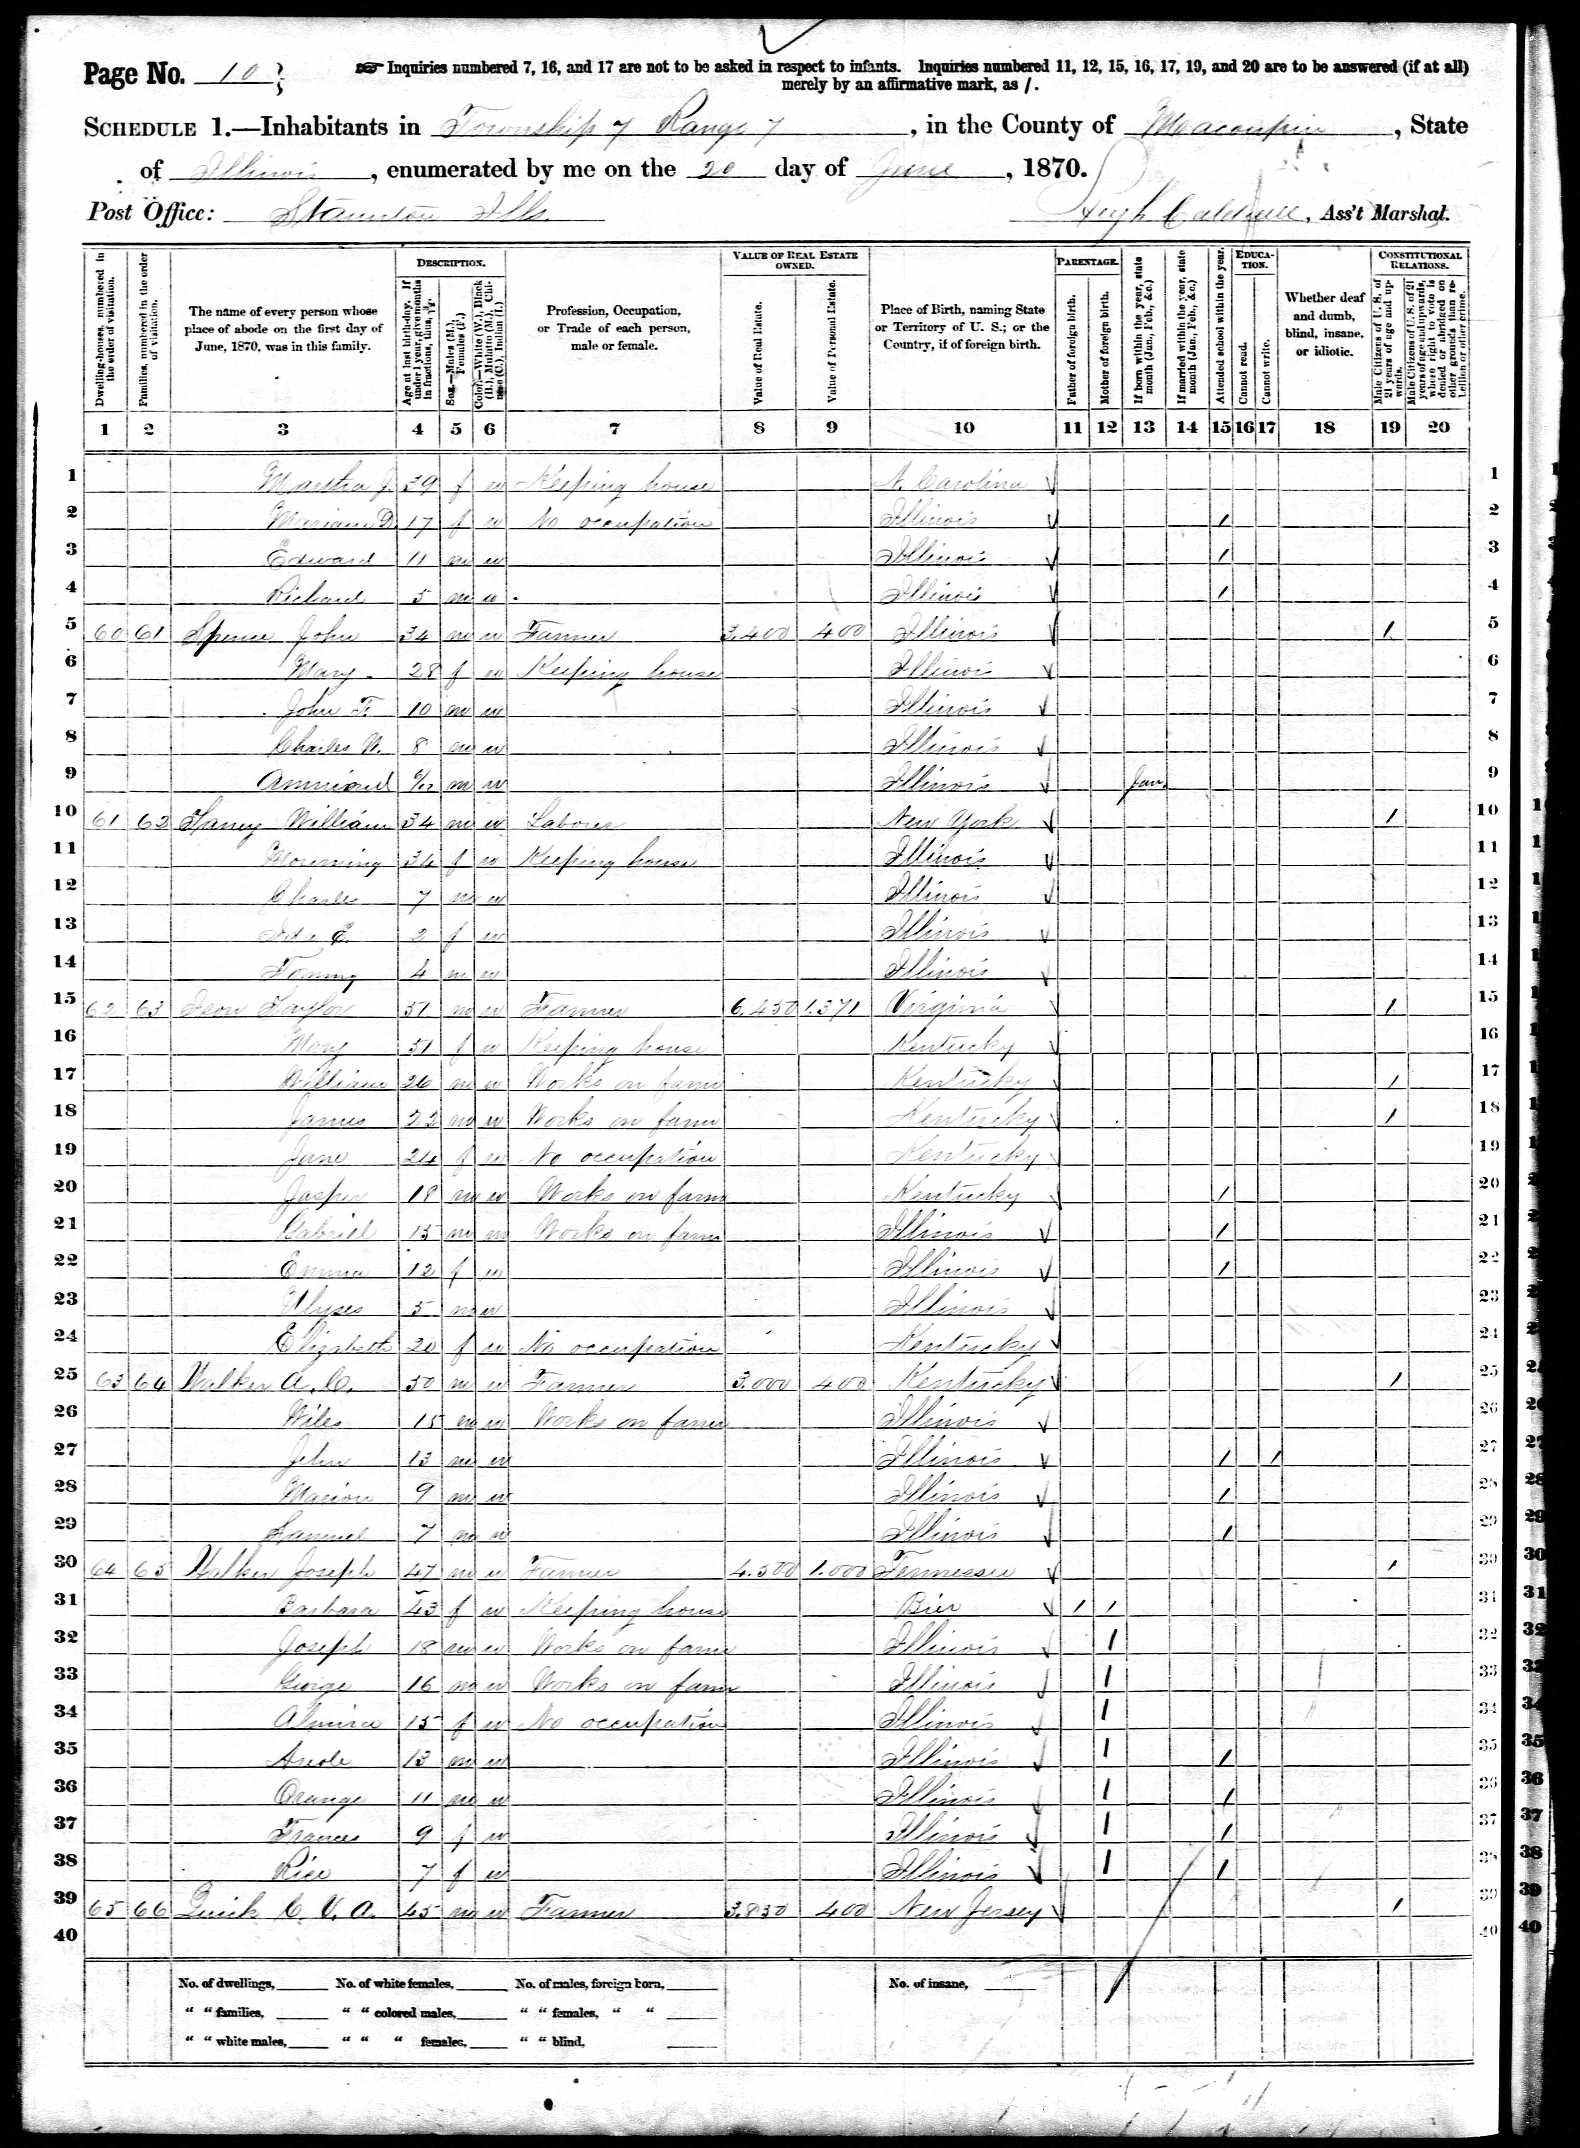 Page No. 10
Inquiries numbered 7, 16, and 17 are not to be asked in respect to infants. Inquiries numbered 11, 12, 15, 16, 17, 19, and 20 are to be answered (if at all)
merely by an affirmative mark, as /.
SCHEDULE 1.—Inhabitants in Township 7 Range 7, in the County of Macoupin, State
of Illinois, enumerated by me on the 20 day of June, 1870.
Post Office: Staunton Ills.
Hugh Caldwell, Ass't Marshal.
Dwelling-houses, numbered in the order of visitation.
Families, numbered in the order of visitation.
The name of every person whose place of abode on the first day of June, 1870, was in this family.
DESCRIPTION.
Age at last birth-day. If under 1 year, give months in fractions, thus, 3/12.
Sex.—Males (M.), Females (F.)
Color.—White (W.), Black (B.), Mulatto (M.), Chinese (C.), Indian (I.)
Profession, Occupation, or Trade of each person, male or female.
VALUE OF REAL ESTATE OWNED.
Value of Real Estate.
Value of Personal Estate.
Place of Birth, naming State or Territory of U. S.; or the Country, if of foreign birth.
PARENTAGE.
Father of foreign birth.
Mother of foreign birth.
If born within the year, state month (Jan., Feb., &c.)
If married within the year, state month (Jan., Feb., &c.)
Attended school within the year.
EDUCATION.
Cannot read.
Cannot write.
Whether deaf and dumb, blind, insane, or idiotic.
CONSTITUTIONAL RELATIONS.
Male Citizens of U. S. of 21 years of age and upwards.
Male Citizens of U. S. of 21 years of age and upwards, where right to vote is denied or abridged on other grounds than rebellion or other crime.
1 2 3 4 5 6 7 8 9 10 11 12 13 14 15 16 17 18 19 20
1 Martha J. 39 f w Keeping house N. Carolina 1
2 D. 17 f w No occupation Illinois / 2
3 Edward 11 m w Illinois / 3
4 Richard 5 m w Illinois / 4
5 60 61 Spence John 34 m w Farmer 3.400 400 Illinois 1 5
6 Mary 28 f w Keeping house Illinois 6
7 John F. 10 m w Illinois 7
8 Charles W. 8 m w Illinois 8
9 m w Illinois Jan 9
10 61 62 William 34 m w Laborer New York / 10
11 Mourning 34 f w Keeping house Illinois 11
12 Charles 7 m w Illinois 12
13 E. 2 f w Illinois 13
14 Tommy 4 m w Illinois 14
15 62 63 Taylor 51 m w Farmer 6.450 1.371 Virginia / 15
16 Mary 51 f w Keeping house Kentucky 16
17 William 26 m w Works on farm Kentucky / 17
18 James 22 m w Works on farm Kentucky / 18
19 Jane 24 f w No occupation Kentucky 19
20 Jasper 18 m w Works on farm Kentucky / 20
21 Gabriel 15 m w Works on farm Illinois / 21
22 Emma 12 f w Illinois / 22
23 Ulyses 5 m w Illinois 23
24 Elizabeth 20 f w No occupation Kentucky 24
25 63 64 Walker A. C. 50 m w Farmer 3.000 400 Kentucky 1 25
26 Wiles 15 m w Works on farm Illinois 26
27 John 13 m w Illinois / / 27
28 Marion 9 m w Illinois / 28
29 Samuel 7 m w Illinois / 29
30 64 65 Walker Joseph 47 m w Farmer 4.500 1.000 Tennessee / 30
31 Barbara 43 f w Keeping house / / 31
32 Joseph 18 m w Works on farm Illinois / 32
33 George 16 m w Works on farm Illinois / 33
34 Almira 15 f w No occupation Illinois / 34
35 13 m w Illinois / / 35
36 Orange 11 m w Illinois / / 36
37 Frances 9 f w Illinois / / 37
38 7 f w Illinois / / 38
39 65 66 Quick C. V. A. 45 m w Farmer 3.850 400 New Jersey 1 39
40 40
No. of dwellings, No. of white females, No. of males, foreign born, No. of insane,
" " families, " " colored males, " " females, " "
" " white males, " " " females, " " blind,